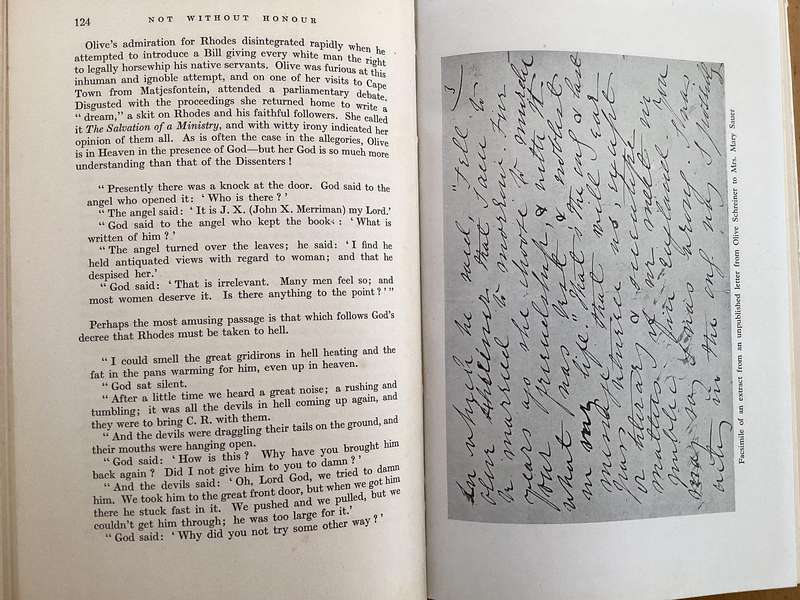 124 NOT WITHOUT HONOUR
Olive's admiration for Rhodes disintegrated rapidly when he
attempted to introduce a Bill giving every white man the right
to legally horsewhip his native servants. Olive was furious at this
inhuman and ignoble attempt, and on one of her visits to Cape
Town from Matjesfontein, attended a parliamentary debate.
Disgusted with the proceedings she returned home to write a
“ dream,” a skit on Rhodes and his faithful followers. She called
it The Salvation of a Ministry, and with witty irony indicated her
opinion of them all. As is often the case in the allegories, Olive
is in Heaven in the presence of God—but her God is so much more
understanding than that of the Dissenters !
“ Presently there was a knock at the door. God said to the
angel who opened it : ‘ Who is there ? ’
“ The angel said : ‘ It is J. X. (John X. Merriman) my Lord.’
“ God said to the angel who kept the books : ‘ What is
written of him ? ’
“ The angel turned over the leaves ; he said : ‘ I find he
held antiquated views with regard to woman ; and that he
despised her.’
“ God said : ‘ That is irrelevant. Many men feel so ; and
most women deserve it. Is there anything to the point ? ’ ”
Perhaps the most amusing passage is that which follows God's
decree that Rhodes must be taken to hell.
“ I could smell the great gridirons in hell heating and the
fat in the pans warming for him, even up in heaven.
“ God sat silent.
“ After a little time we heard a great noise ; a rushing and
tumbling ; it was all the devils in hell coming up again, and
they were to bring C. R. with them.
“ And the devils were draggling their tails on the ground, and
their mouths were hanging open.
“ God said : ‘ How is this ? Why have you brought him
back again ? Did I not give him to you to damn ? ’
“ And the devils said : ‘ Oh, Lord God, we tried to damn
him. We took him to the great front door, but when we got him
there he stuck fast in it. We pushed and we pulled, but we
couldn't get him through ; he was too large for it.’
“ God said : ‘ Why did you not try some other way ? ’
in which he said, "tell
Olive Schreiner that I am to
be married to morrow. Four
years ago she choose to murder
our friendship, & with it
what was best & noblest
in my life." That is the
that will
or literary
matters
husband you
may say
in the
Facsimile of an extract from an unpublished letter from Olive Schreiner to Mrs. Mary Sauer